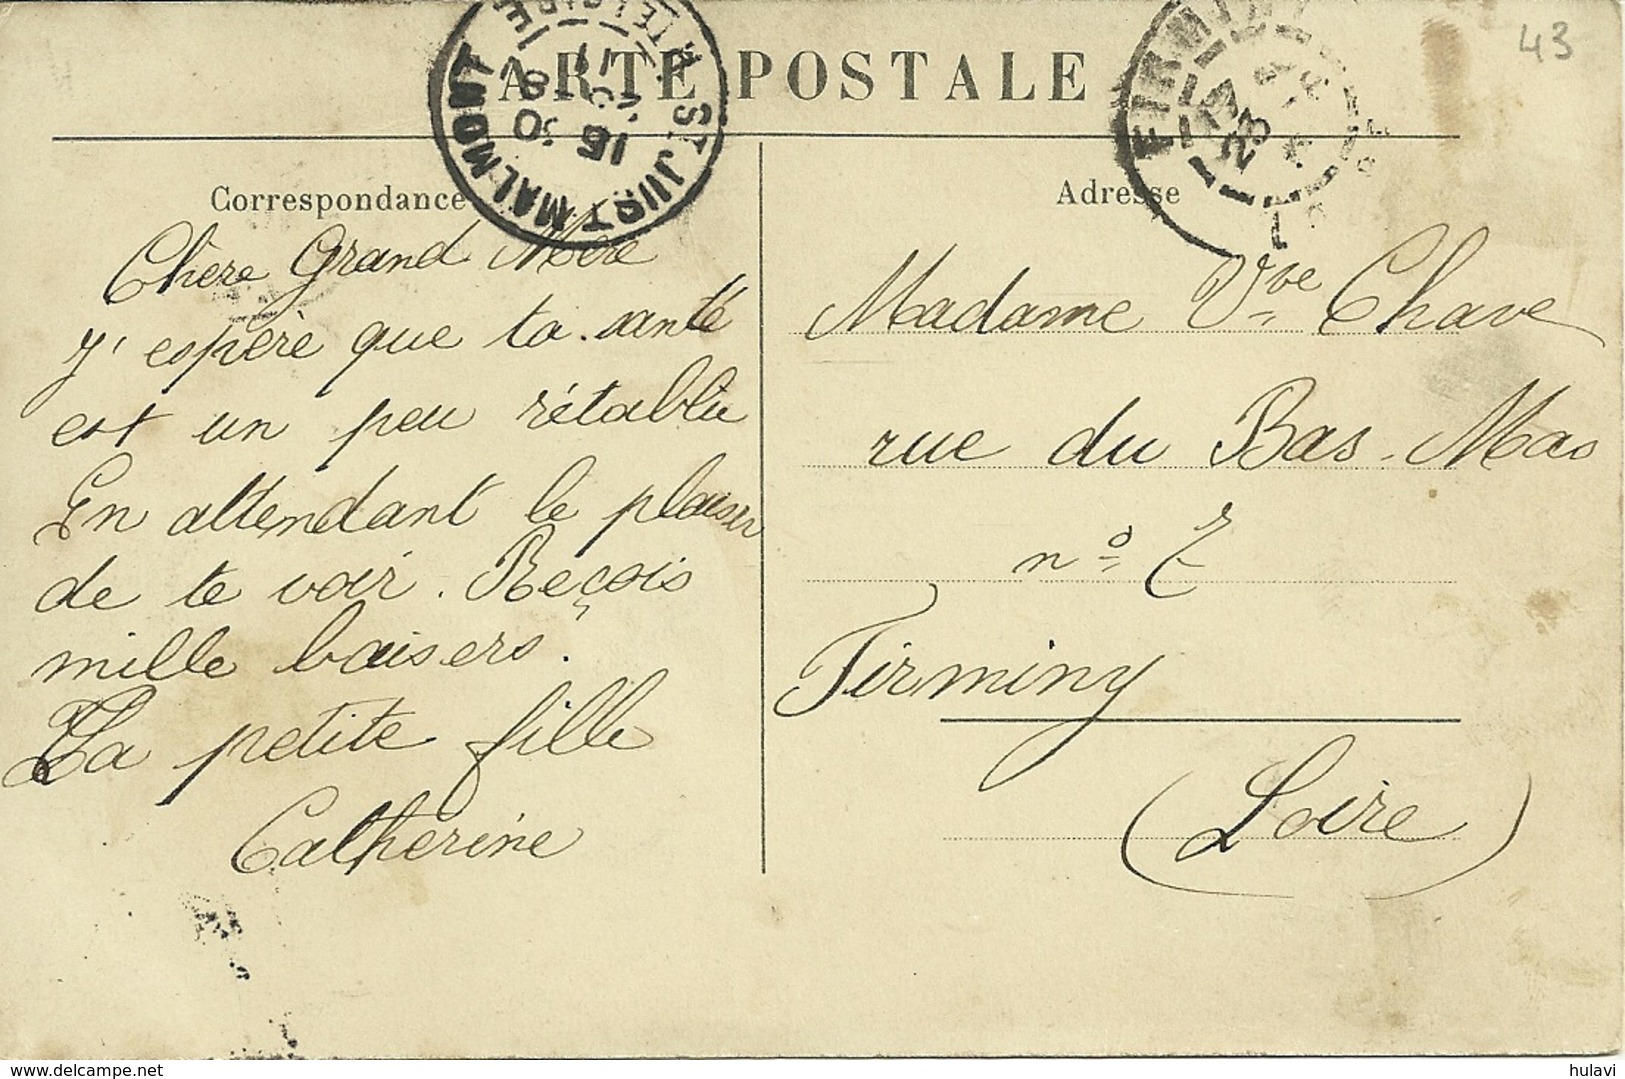 43
CARTE POSTALE
ST JUST MALMONT
HTE LOIRE
FIRMINY
Correspondance
Chère Grand Mère
J'espère que ta santé
est un peu rétablie
En attendant le plaisir
de te voir. Reçois
mille baisers.
Ta petite fille
Catherine
Adresse
Madame Vve Chave
rue du Bas-Mas
n° 7
Firminy
(Loire)
hulavi